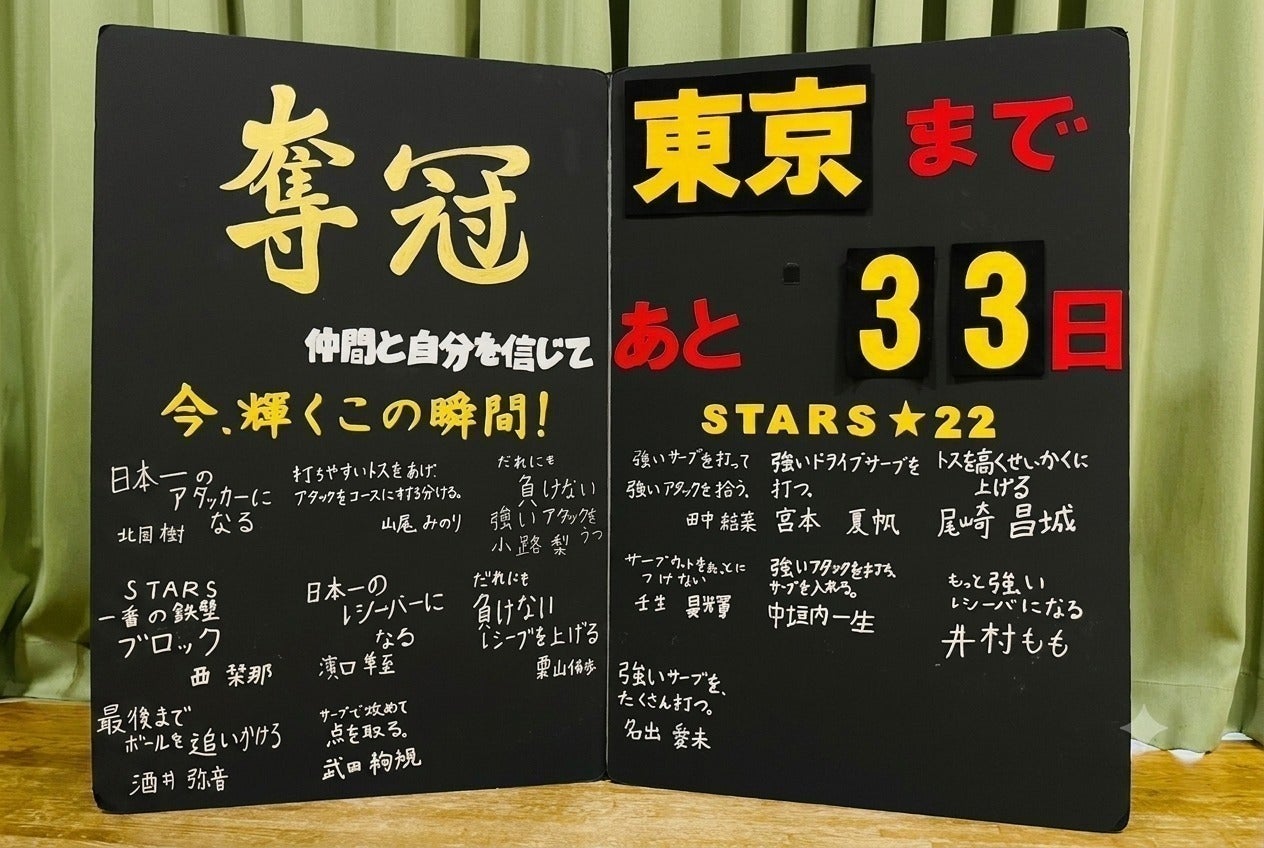 奪冠
仲間と自分を信じて
今、輝くこの瞬間!
日本一の
アタッカーに
なる
北国 樹
打ちやすいトスをあげ、
アタックをコースにする分ける。
山尾 みのり
だれにも
負けない
強いアタックを
うつ
小路 梨
STARS
一番の鉄壁
ブロック
西 栞那
日本一の
レシーバーに
なる
濱口 隼至
だれにも
負けない
レシーブを上げる
栗山侑歩
最後まで
ボールを追いかける
酒井 弥音
サーブで攻めて
点を取る。
武田 絢規
東京まで
あと 33日
STARS★22
強いサーブを打って
強いアタックを拾う。
田中 結菜
強いドライブサーブを
打つ。
宮本 夏帆
トスを高くせいかくに
上げる
尾崎 昌城
サーブカットをに
つけない
壬生
強いアタックを打ち、
サーブを入れる。
中垣内一生
もっと強い
レシーバになる
井村もも
強いサーブを、
たくさん打つ。
名出 愛未